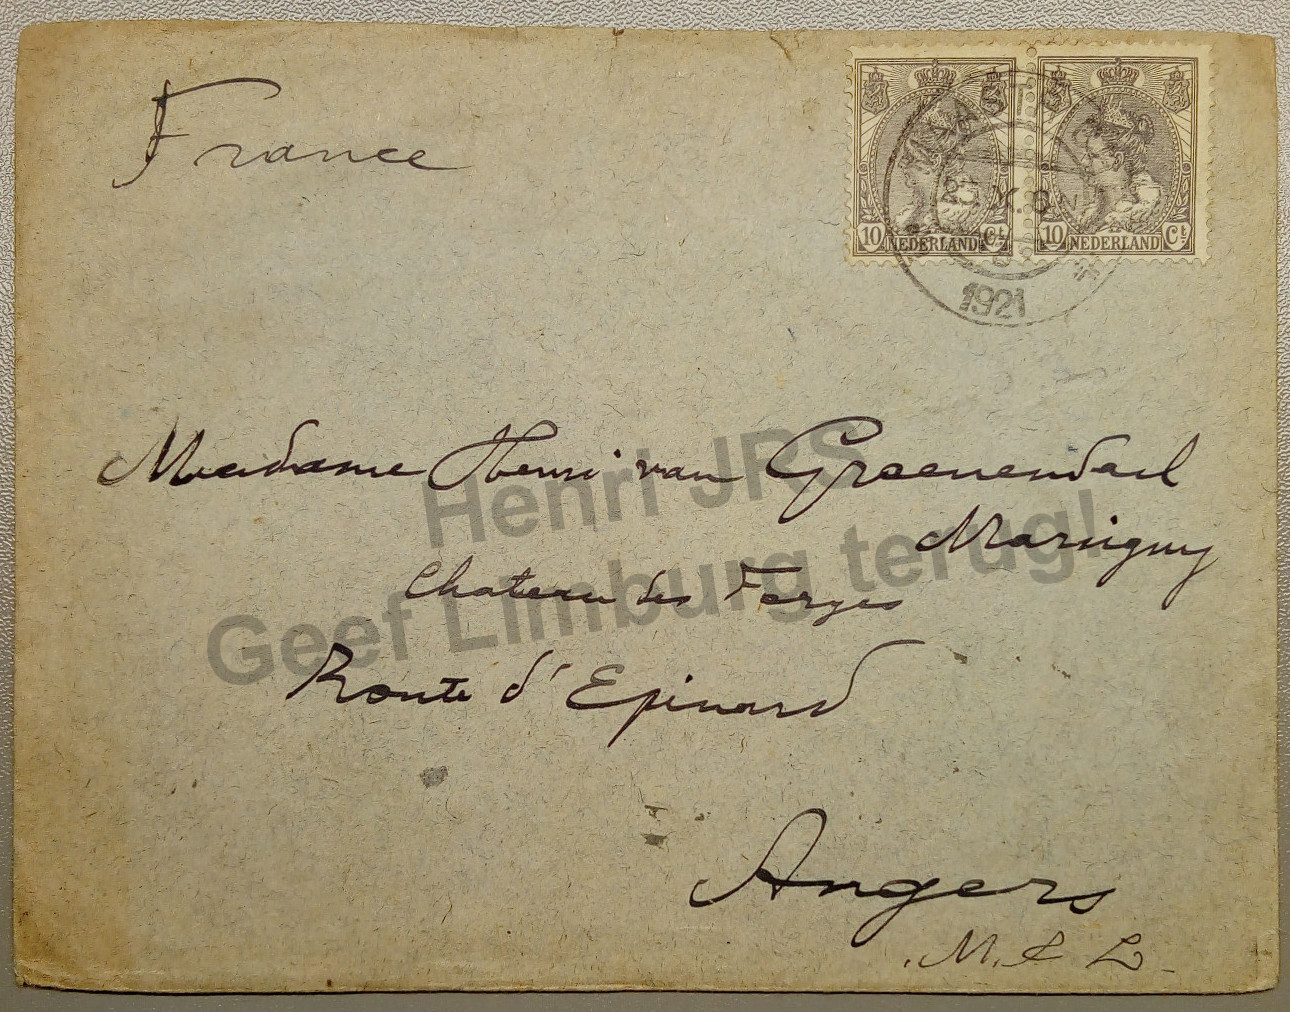 France
10 NEDERLAND Ct
10 NEDERLAND Ct
1921
Madame Henri van Groenendael
Marsigny
Chateau des Forges
Route d'Epinard
Angers
M. & L.
Henri JRS
Geef Limburg terug!